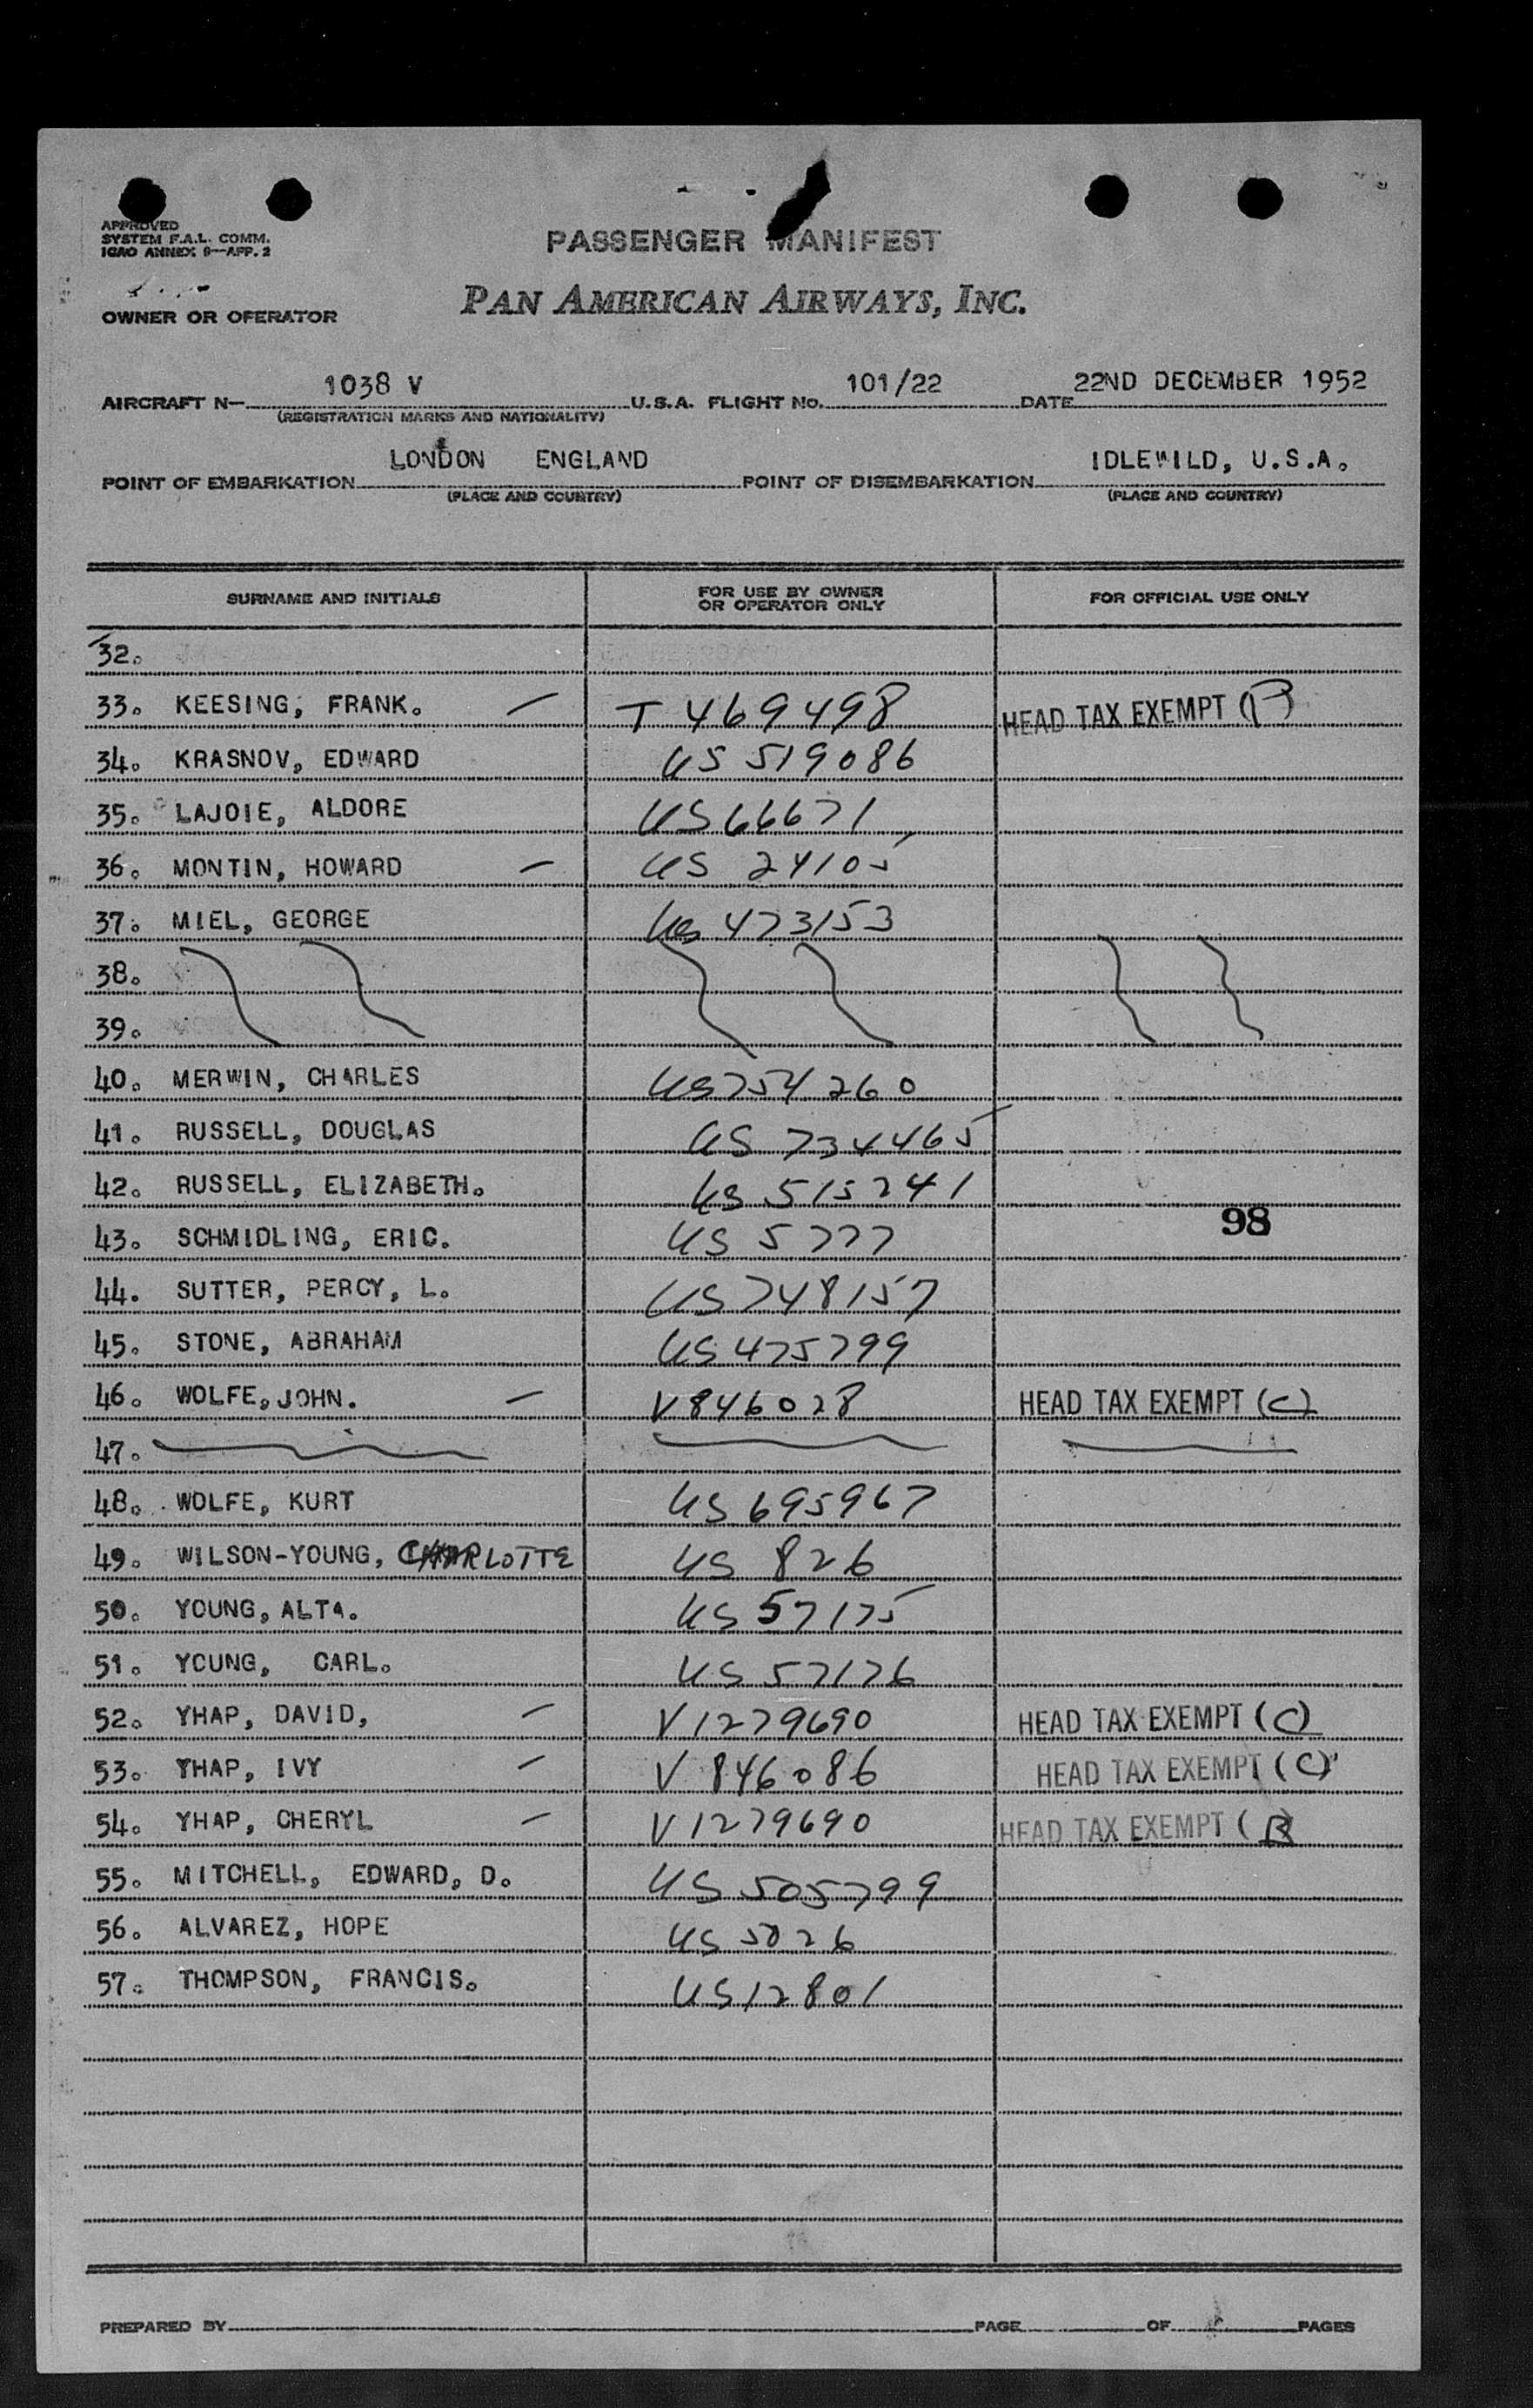 APPROVED
SYSTEM F.A.L. COMM.
ICAO ANNEX 9—APP. 2
PASSENGER MANIFEST
OWNER OR OPERATOR
PAN AMERICAN AIRWAYS, INC.
AIRCRAFT N— 1038 V U.S.A. FLIGHT No. 101/22 DATE 22ND DECEMBER 1952
(REGISTRATION MARKS AND NATIONALITY)
POINT OF EMBARKATION LONDON ENGLAND POINT OF DISEMBARKATION IDLEWILD, U.S.A.
(PLACE AND COUNTRY) (PLACE AND COUNTRY)
SURNAME AND INITIALS FOR USE BY OWNER OR OPERATOR ONLY FOR OFFICIAL USE ONLY
32.
33. KEESING, FRANK. — T 469498 HEAD TAX EXEMPT
34. KRASNOV, EDWARD US 519086
35. LAJOIE, ALDORE US 66671
36. MONTIN, HOWARD — US 24105
37. MIEL, GEORGE US 473153
38.
39.
40. MERWIN, CHARLES US 754260
41. RUSSELL, DOUGLAS US 734465
42. RUSSELL, ELIZABETH. US 515241
43. SCHMIDLING, ERIC. US 5777
98
44. SUTTER, PERCY, L. US 748157
45. STONE, ABRAHAM US 475799
46. WOLFE, JOHN. — V 846028 HEAD TAX EXEMPT (C)
47.
48. WOLFE, KURT US 695967
49. WILSON-YOUNG, CHARLOTTE US 826
50. YOUNG, ALTA. US 57175
51. YOUNG, CARL. US 57176
52. YHAP, DAVID, — V 1279690 HEAD TAX EXEMPT (C)
53. YHAP, IVY — V 846086 HEAD TAX EXEMPT (C)
54. YHAP, CHERYL — V 1279690 HEAD TAX EXEMPT (B
55. MITCHELL, EDWARD, D. US 505799
56. ALVAREZ, HOPE US 5026
57. THOMPSON, FRANCIS. US 12801
PREPARED BY PAGE OF PAGES